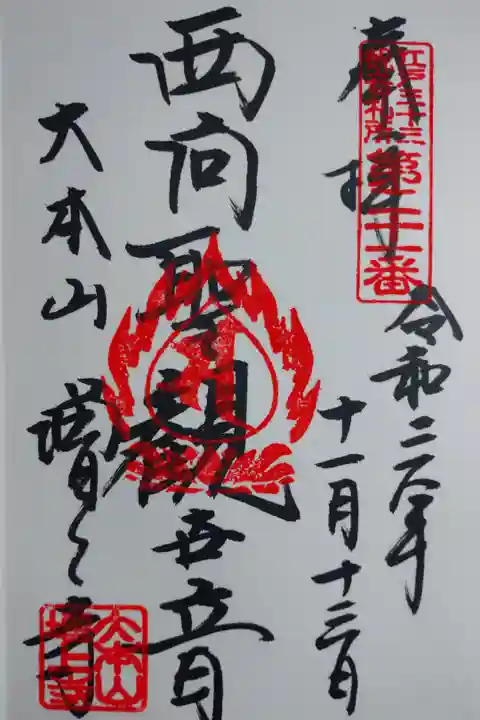 奉拝
江戸三十三
観音札所
第二十一番
令和二年
十一月十三日
西向聖観世音
大本山 増上寺
大本山
増上寺